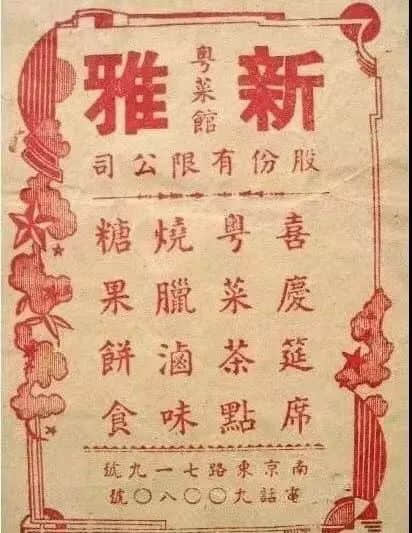 新雅
粵菜館
股份有限公司
喜慶筵席
粵菜茶點
燒臘滷味
糖果餅食
南京東路七一九號
電話九〇〇八〇號